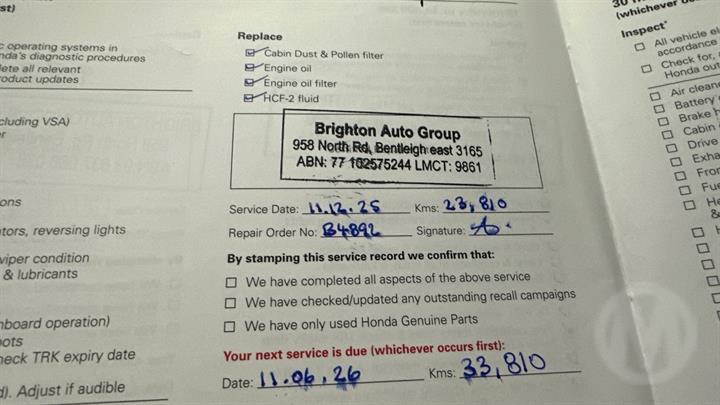 st)
c operating systems in
nda's diagnostic procedures
lete all relevant
roduct updates
cluding VSA)
ons
ators, reversing lights
wiper condition
& lubricants
nboard operation)
heck TRK expiry date
d). Adjust if audible
Replace
Cabin Dust & Pollen filter
Engine oil
Engine oil filter
HCF-2 fluid
Brighton Auto Group
958 North Rd, Bentleigh east 3165
ABN: 77 102575244 LMCT: 9861
Service Date: 11.12.25 Kms: 23,810
Repair Order No: B4892 Signature:
By stamping this service record we confirm that:
We have completed all aspects of the above service
We have checked/updated any outstanding recall campaigns
We have only used Honda Genuine Parts
Your next service is due (whichever occurs first):
Date: 11.06.26 Kms: 33,810
(whichever
Inspect*
All vehicle el
accordance
Check for,
Honda out
Air clean
Battery
Brake h
Cabin
Drive
Exha
Fron
Fue
He
&